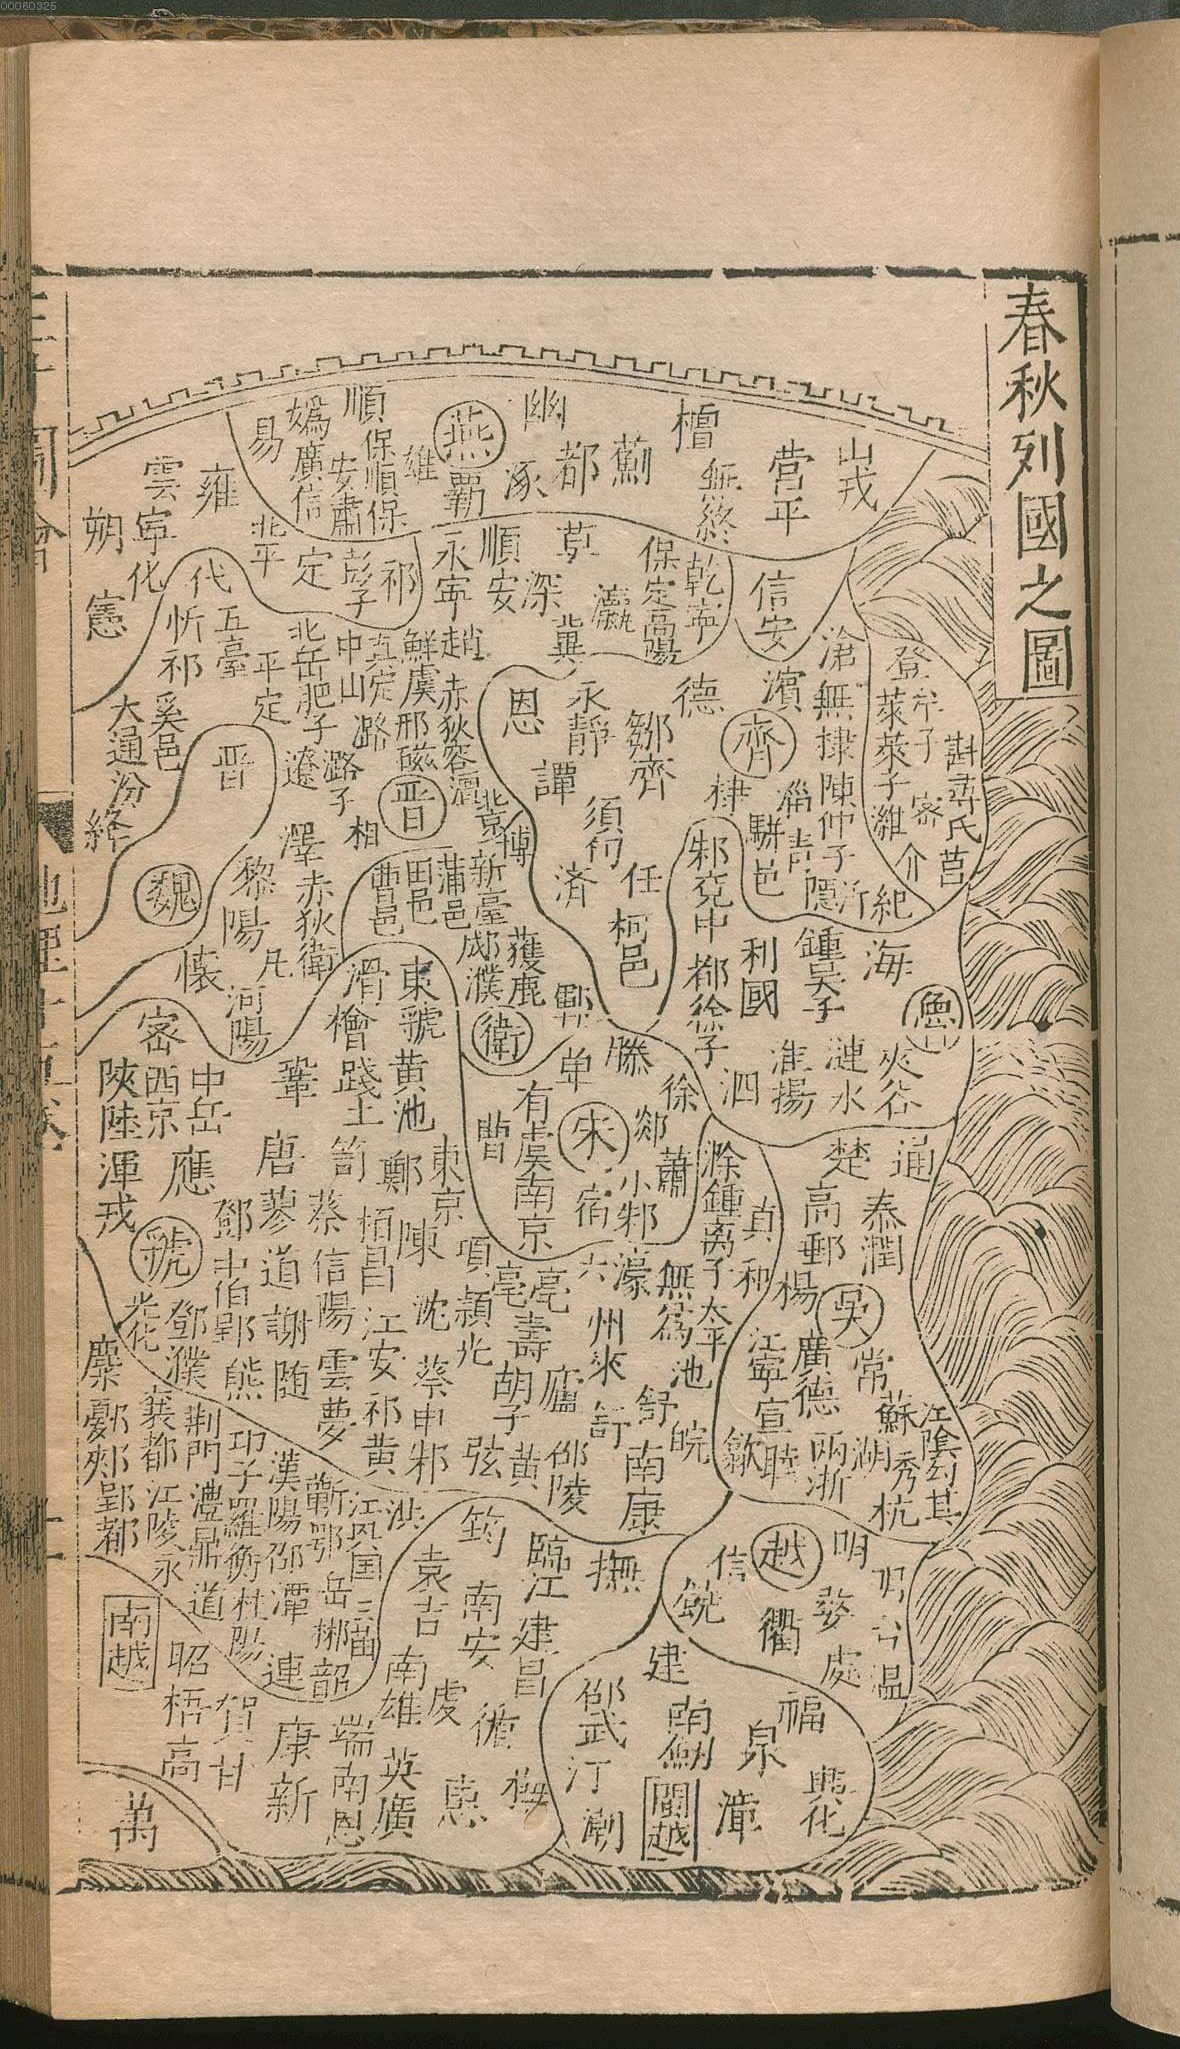 00060325
春秋列國之圖
山戎
營平
檀
無終
薊
都
幽
涿
燕
霸
雄
順
保順保
安肅
嬀
廣信
易
北平
雍
雲
寧化
朔
憲
信安
乾寧
保定高陽
瀛
莫
冀
深
順安
永寧
祁
彭子
定
代
五臺
忻
祁
平定
北岳肥子
中山
真定
鮮虞
邢
磁
趙
赤狄
潞
潞子
遼
奚邑
大通
汾
絳
晋
晋
魏
相
澤
黎陽
赤狄
衛
凡
懷
河陽
登
萊
萊子
濰
密
介
莒
滄
無棣
陳仲子
濱
齊
德
棣
淄
青
駢邑
隱
沂
紀
恩
永靜
鄒
齊
譚
須句
濟
任
柯邑
博
邾
兖
中都
徐子
利國
鍾吳子
海
魯
夾谷
漣水
淮揚
泗
曹邑
田邑
蒲邑
新臺
邶
濮
獲鹿
衛
鄆
單
滕
徐
郯
蕭
小邾
宿
宋
有虞
南京
曹
滑
檜
東虢
黄池
踐土
鞏
密
西京
中岳
陝
陸渾戎
應
唐
蓼
道
謝
随
鄧
鄭
東京
陳
栢
昌
蔡
信陽
雲夢
江安
祁
黄
沈
蔡
申
邾
項
潁
光
亳
亳
壽
胡子
黄
弦
六
濠
州來
廬
舒
舒
邵陵
南康
皖
池
無爲
太平
滁
鍾离子
真
和
楚
通
高郵
泰
潤
楊
吳
江寧
宣
廣德
常
蘇
江陰
秀
湖
兩浙
杭
歙
睦
虢
光化
鄧
濮
熊
麇
襄
都
江陵
荆門
澧
鼎
道
永
卭子
羅
衡
桂陽
漢陽
潭
連
蘄
鄂
岳
郴
韶
三苗
洪
筠
袁
吉
臨江
撫
南安
建昌
南雄
虔
循
梅
惠
英
廣
端
南恩
康
新
賀
昭
梧
高
南越
萬
越
信
饒
衢
明
婺
處
温
建
南劍
邵武
汀
潮
福
泉
漳
興化
閩越